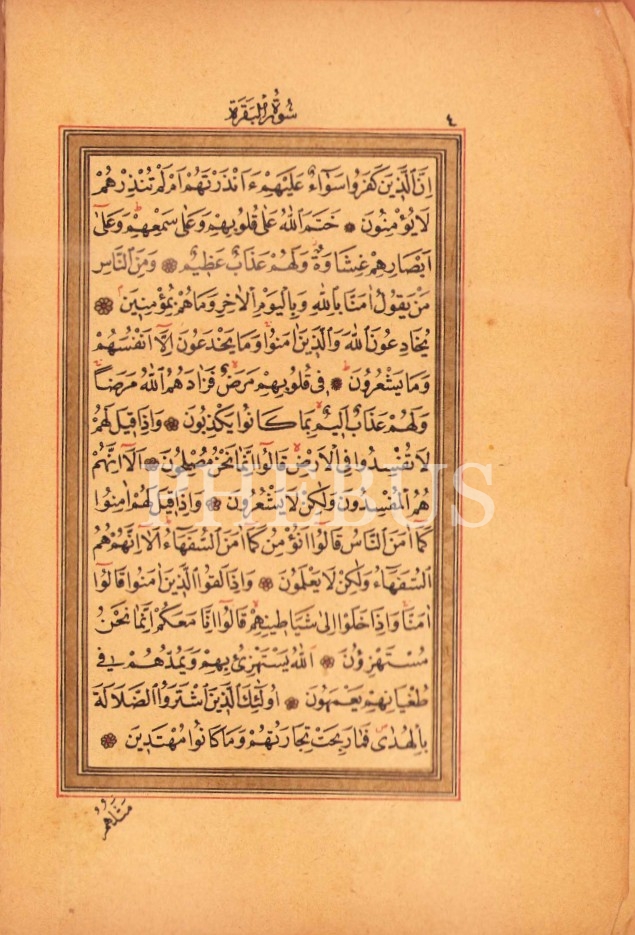 سورة البقرة ٤
اِنَّ الَّذِينَ كَفَرُوا سَوَاءٌ عَلَيْهِمْ ءَاَنْذَرْتَهُمْ اَمْ لَمْ تُنْذِرْهُمْ
لَا يُؤْمِنُونَ ❋ خَتَمَ اللّٰهُ عَلٰى قُلُوبِهِمْ وَعَلٰى سَمْعِهِمْ وَعَلٰى
اَبْصَارِهِمْ غِشَاوَةٌ وَلَهُمْ عَذَابٌ عَظِيمٌ ❋ وَمِنَ النَّاسِ
مَنْ يَقُولُ اٰمَنَّا بِاللّٰهِ وَبِالْيَوْمِ الْاٰخِرِ وَمَا هُمْ بِمُؤْمِنِينَ ❋
يُخَادِعُونَ اللّٰهَ وَالَّذِينَ اٰمَنُوا وَمَا يَخْدَعُونَ اِلَّا اَنْفُسَهُمْ
وَمَا يَشْعُرُونَ ❋ فِى قُلُوبِهِمْ مَرَضٌ فَزَادَهُمُ اللّٰهُ مَرَضًا
وَلَهُمْ عَذَابٌ اَلِيمٌ بِمَا كَانُوا يَكْذِبُونَ ❋ وَاِذَا قِيلَ لَهُمْ
لَا تُفْسِدُوا فِى الْاَرْضِ قَالُوا اِنَّمَا نَحْنُ مُصْلِحُونَ ❋ اَلَا اِنَّهُمْ
هُمُ الْمُفْسِدُونَ وَلٰكِنْ لَا يَشْعُرُونَ ❋ وَاِذَا قِيلَ لَهُمْ اٰمِنُوا
كَمَا اٰمَنَ النَّاسُ قَالُوا اَنُؤْمِنُ كَمَا اٰمَنَ السُّفَهَاءُ اَلَا اِنَّهُمْ هُمُ
السُّفَهَاءُ وَلٰكِنْ لَا يَعْلَمُونَ ❋ وَاِذَا لَقُوا الَّذِينَ اٰمَنُوا قَالُوا
اٰمَنَّا وَاِذَا خَلَوْا اِلٰى شَيَاطِينِهِمْ قَالُوا اِنَّا مَعَكُمْ اِنَّمَا نَحْنُ
مُسْتَهْزِؤُنَ ❋ اَللّٰهُ يَسْتَهْزِئُ بِهِمْ وَيَمُدُّهُمْ فِى
طُغْيَانِهِمْ يَعْمَهُونَ ❋ اُولٰئِكَ الَّذِينَ اشْتَرَوُا الضَّلَالَةَ
بِالْهُدٰى فَمَا رَبِحَتْ تِجَارَتُهُمْ وَمَا كَانُوا مُهْتَدِينَ ❋
مَثَلُهُمْ
PHEBUS